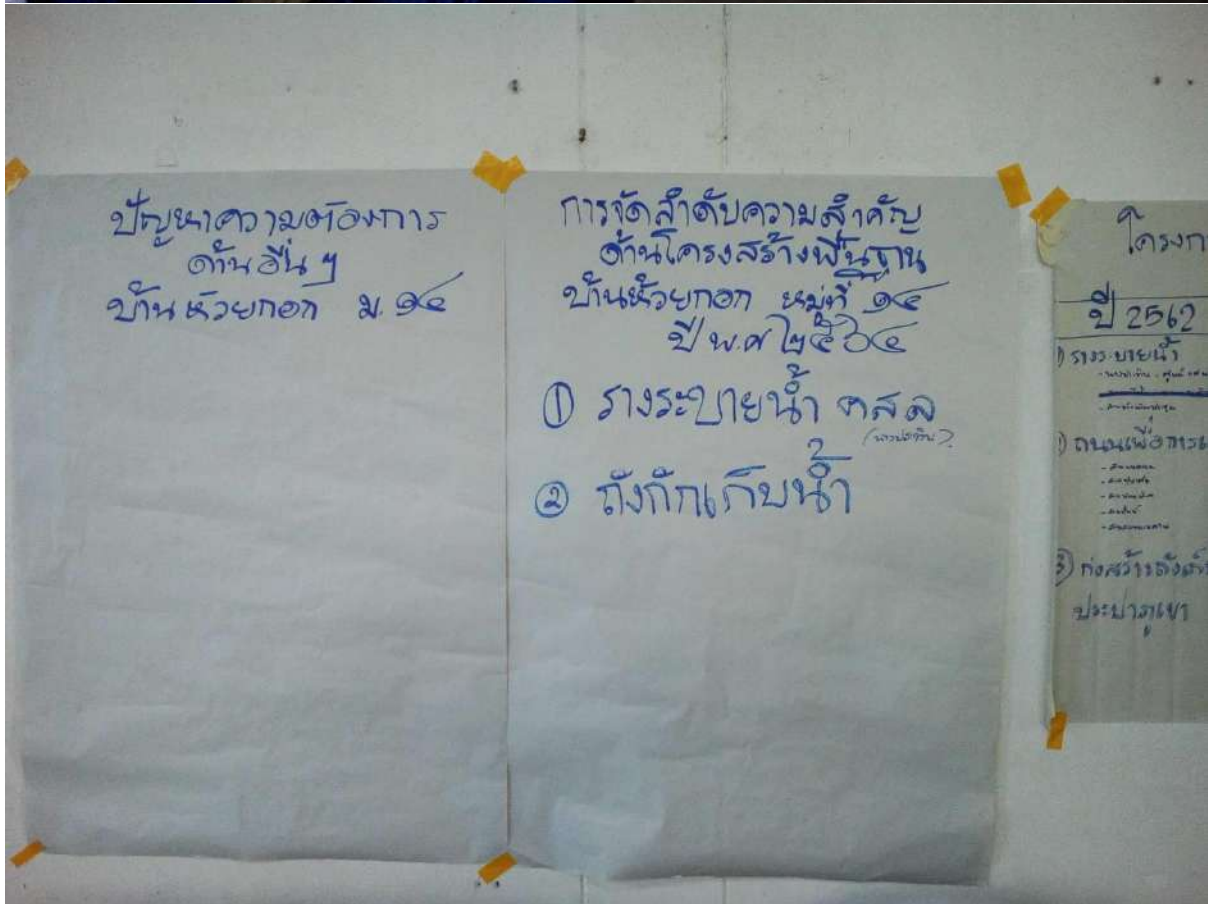 ปัญหาความต้องการ
ด้านอื่น ๆ
บ้านห้วยกอก ม. ๑๔
การจัดลำดับความสำคัญ
ด้านโครงสร้างพื้นฐาน
บ้านห้วยกอก หมู่ที่ ๑๔
ปี พ.ศ ๒๕๖๔
① รางระบายน้ำ คสล
② ถังกักเก็บน้ำ
โครงกา
ปี 2562
รางระบายน้ำ
ถนนเพื่อการเ
③ ก่อสร้างถัง
ประปาภูเขา